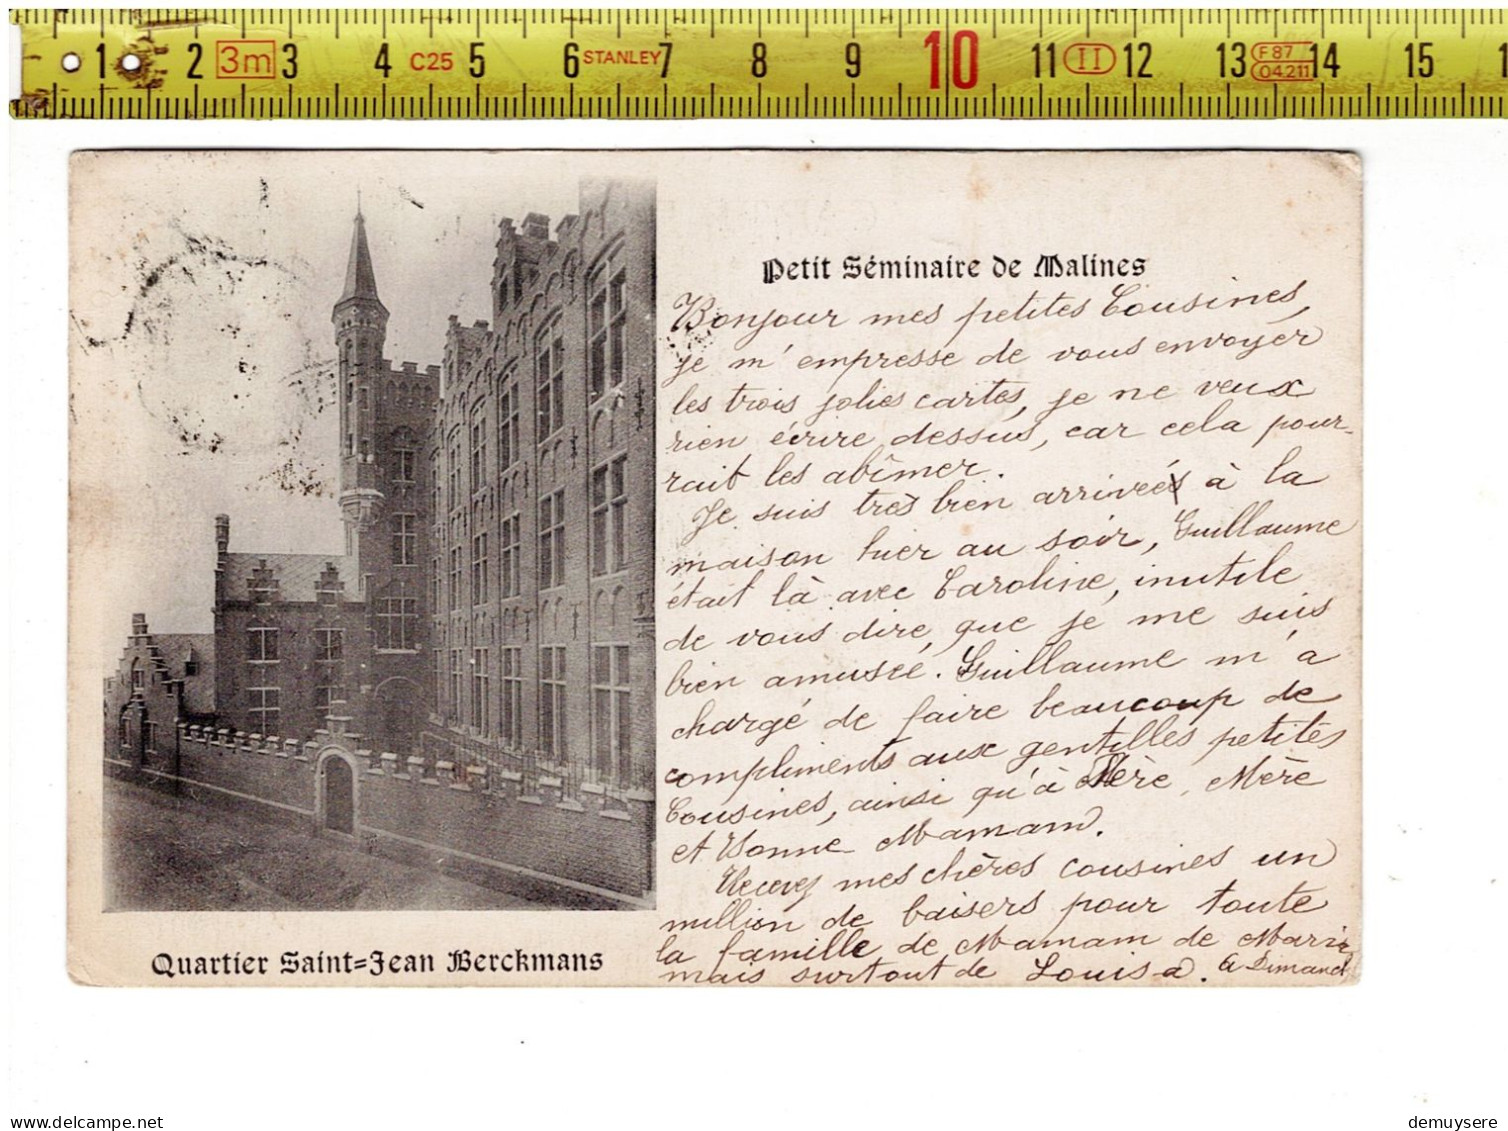 1 2 3m 3 4 C25 5 6 STANLEY 7 8 9 10 11 II 12 13 F 87 04.211 14 15
Petit Séminaire de Malines
Bonjour mes petites Cousines,
je m'empresse de vous envoyer
les trois jolies cartes, je ne veux
rien écrire dessus, car cela pour-
rait les abîmer.
Je suis très bien arrivée à la
maison hier au soir, Guillaume
était là avec Caroline, inutile
de vous dire que je me suis
bien amusée. Guillaume m'a
chargé de faire beaucoup de
compliments aux gentilles petites
Cousines, ainsi qu'à Père, Mère
et Bonne Maman.
Recevez mes chères cousines un
million de baisers pour toute
la famille de Maman de Marie
mais surtout de Louisa. A Dimanch
Quartier Saint=Jean Berckmans
delcampe.net
demuysere